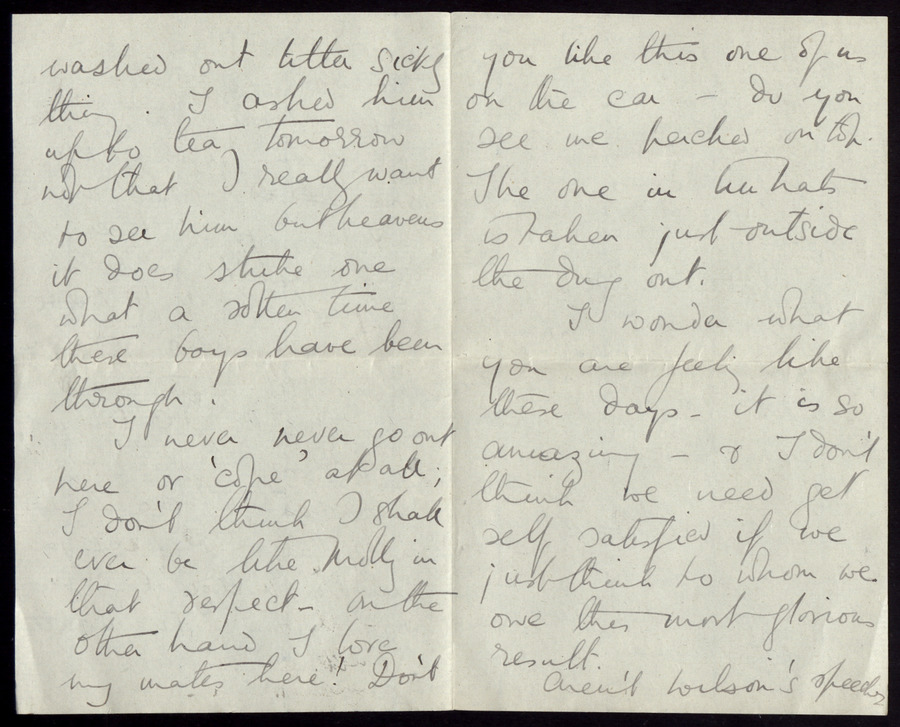 washed out little sickly
thing. I asked him
up to tea tomorrow
not that I really want
to see him but heavens
it does strike one
what a rotten time
these boys have been
through.
I never never go out
here or 'cope' at all;
I don't think I shall
ever be like Molly in
that respect - on the
other hand I love
my mates here! Don't
you like this one of us
on the car - do you
see me perched on top.
The one in tin hats
is taken just outside
the dug out.
I wonder what
you are feeling like
these days - it is so
amazing - & I don't
think we need get
self satisfied if we
just think to whom we
owe this most glorious
result.
Aren't Wilson's speeches